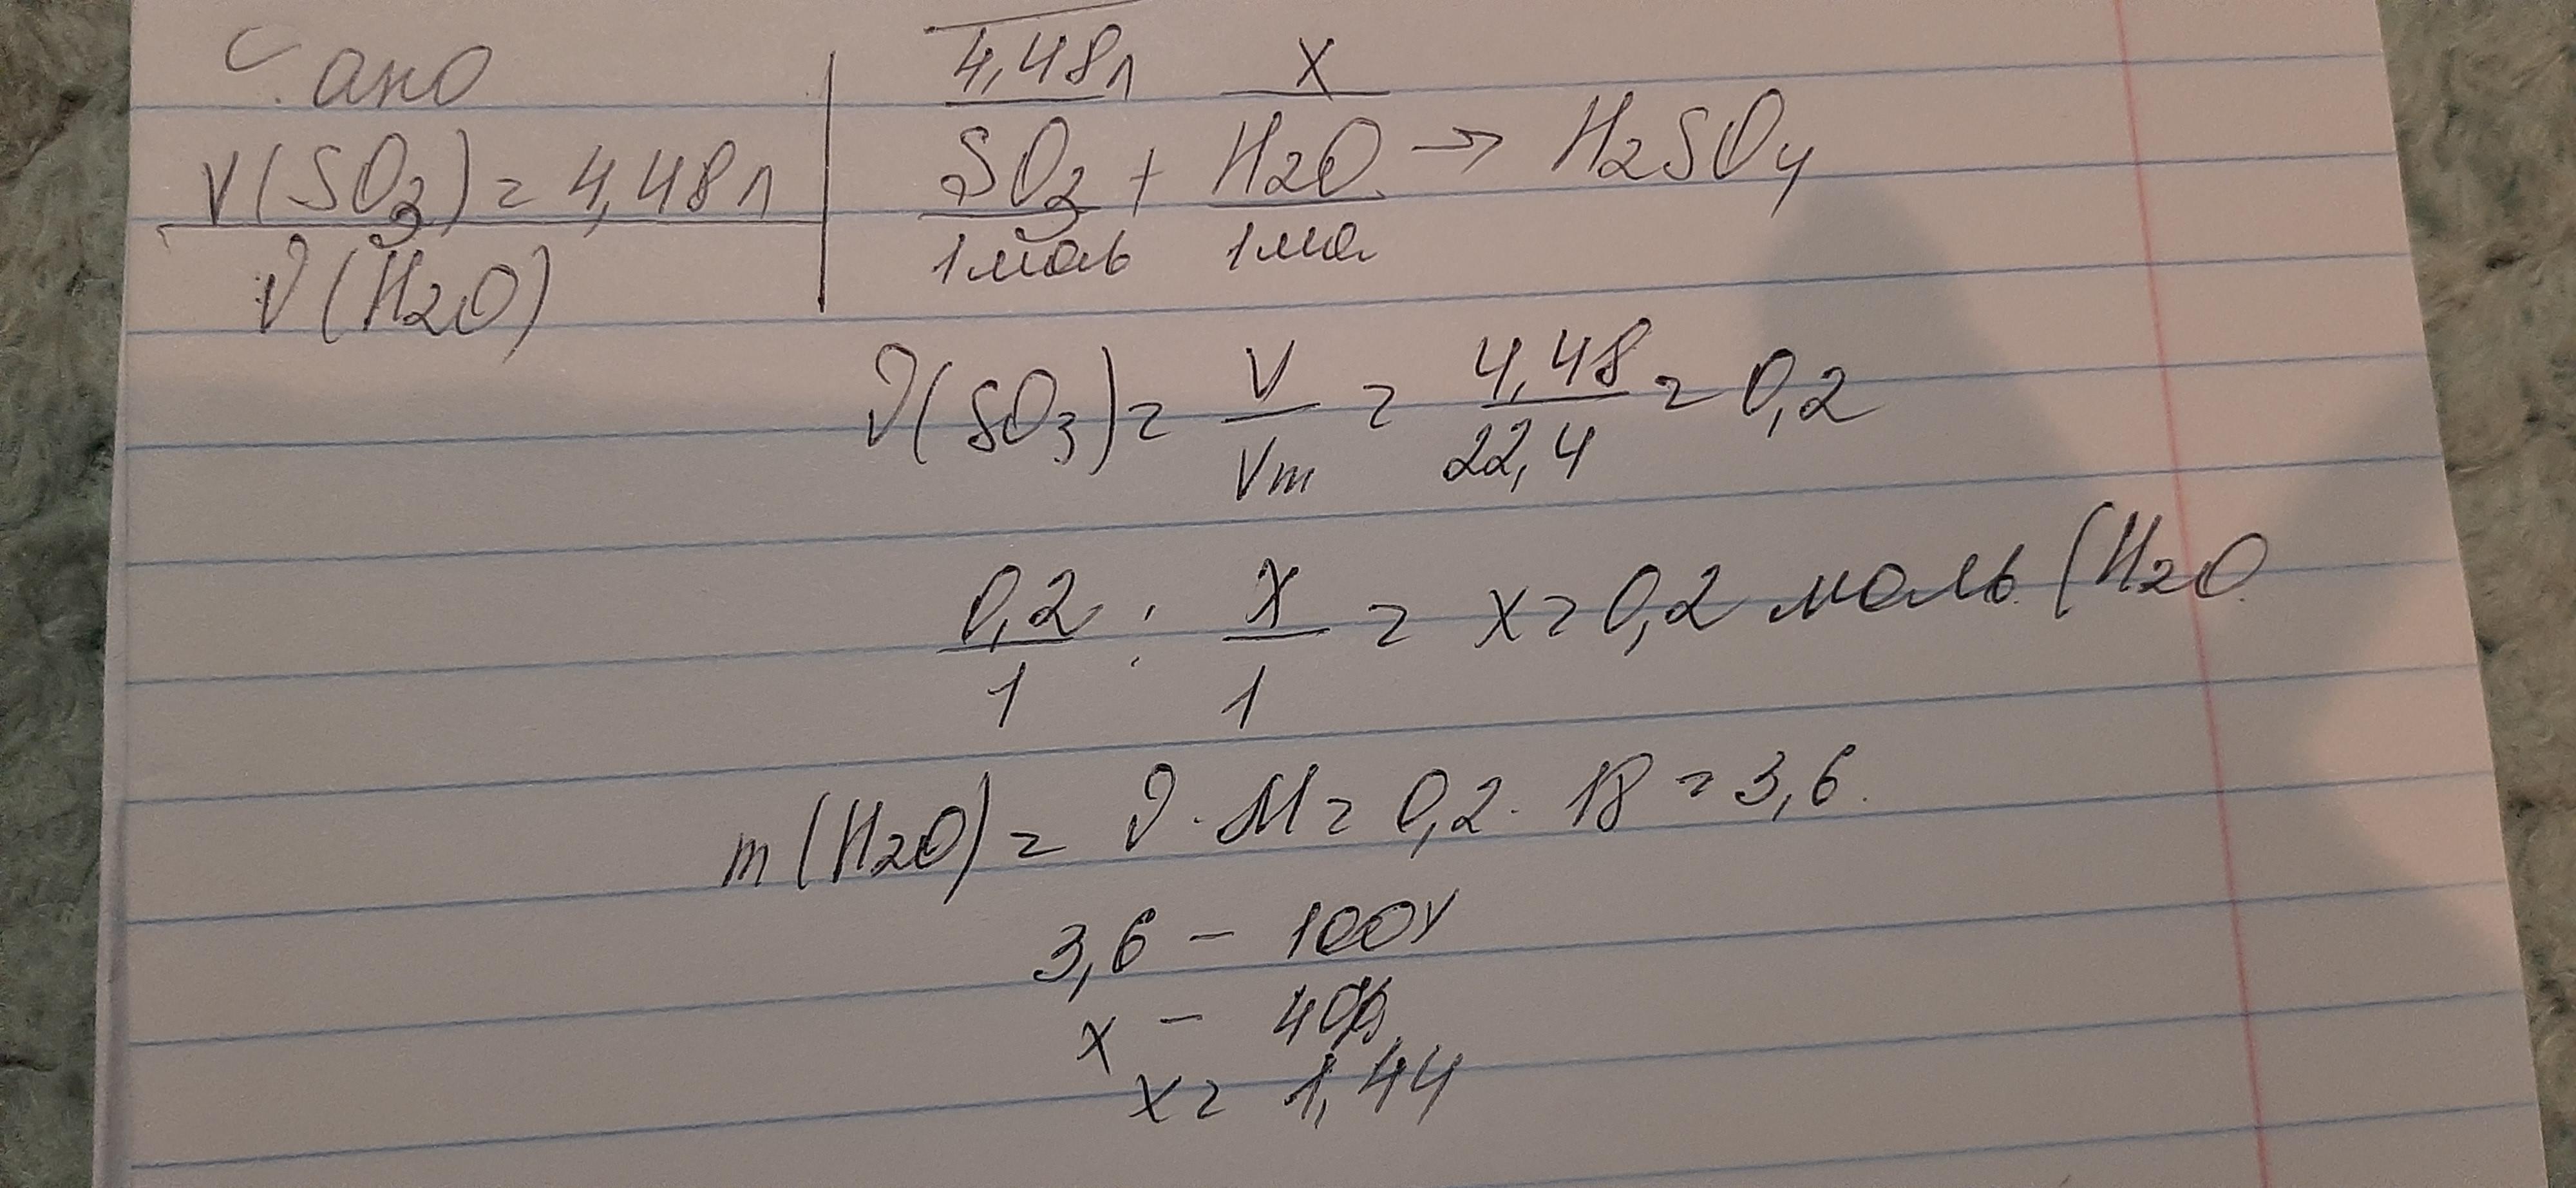 Дано
V(SO3) = 4,48л
ν(H2O)
4,48л x
SO3 + H2O → H2SO4
1моль 1мол
ν(SO3) = V/Vm = 4,48/22,4 = 0,2
0,2/1 : x/1 = x = 0,2 моль (H2O
m(H2O) = ν · M = 0,2 · 18 = 3,6.
3,6 – 100%
x – 40%
x = 1,44